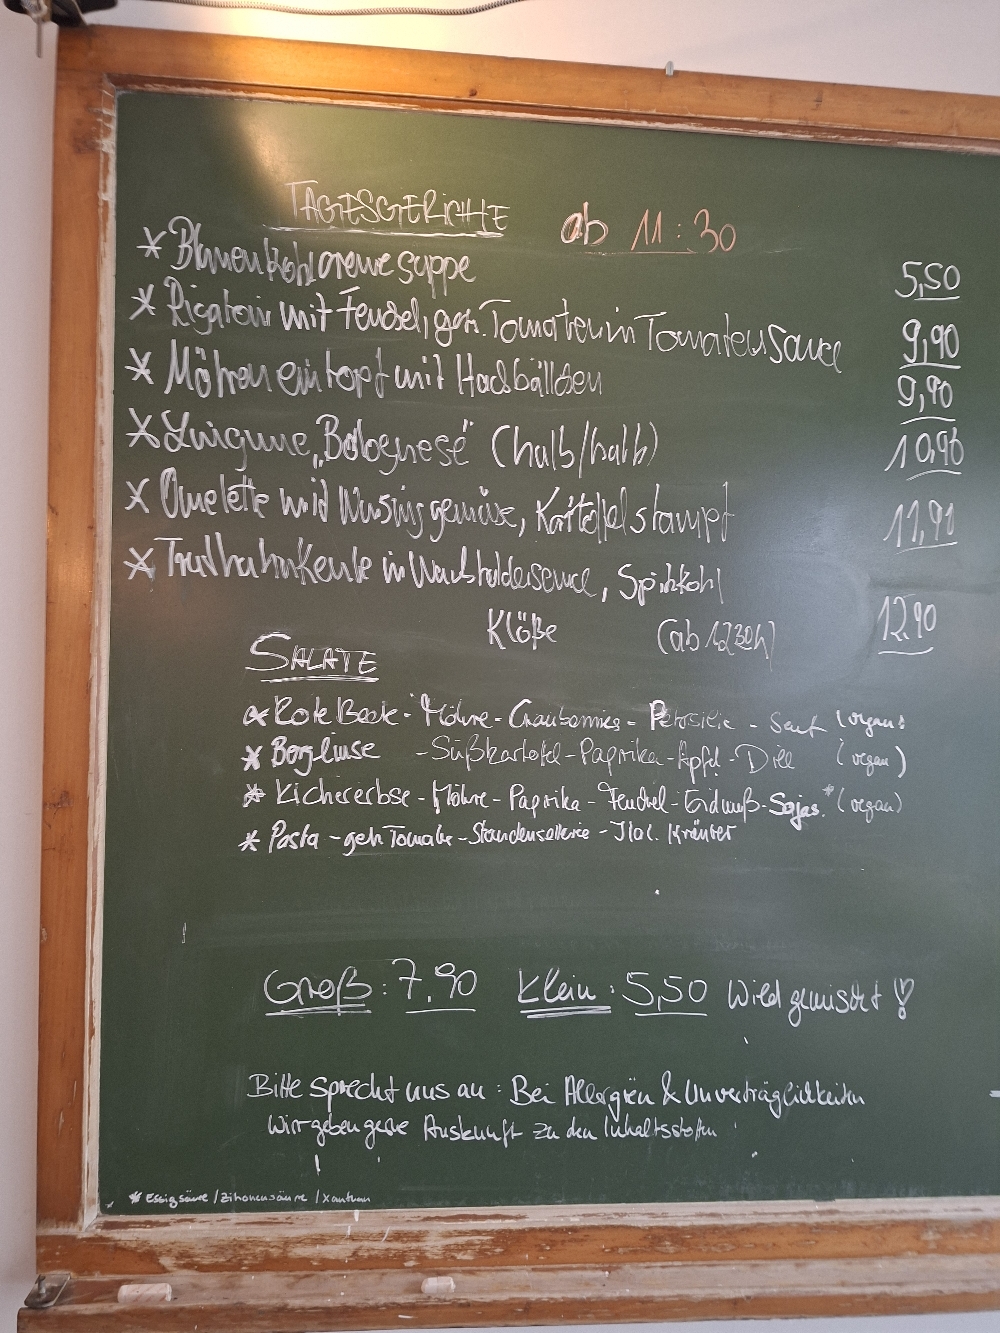 TAGESGERICHTE ab 11:30
* Blumenkohlcremesuppe 5,50
* Rigatoni mit Fenchel, getr. Tomaten in Tomatensauce 9,90
* Möhreneintopf mit Hackbällchen 9,90
* Linguine „Bolognese“ (halb/halb) 10,90
* Omelette mid Wirsinggemüse, Kartoffelstampf 11,90
* Truthahnkeule in Wacholdersauce, Spitzkohl
Klöße (ab 12 30h) 12,90
SALATE
* Rote Beete - Möhre - Cranberries - Petersilie - Senf (vegan)
* Berglinse - Süßkartofel - Paprika - Apfel - Dill (vegan)
* Kichererbse - Möhre - Paprika - Fenchel - Erdnuß - Sojas.* (vegan)
* Pasta - getr. Tomate - Staudensellerie - Ital. Kräuter
Groß: 7,90 Klein: 5,50 Wild gemischt!
Bitte sprecht uns an: Bei Allergien & Unverträglichkeiten
Wir geben gerne Auskunft zu den Inhaltsstoffen
* Essigsäure / Zitronensäure / Xanthan